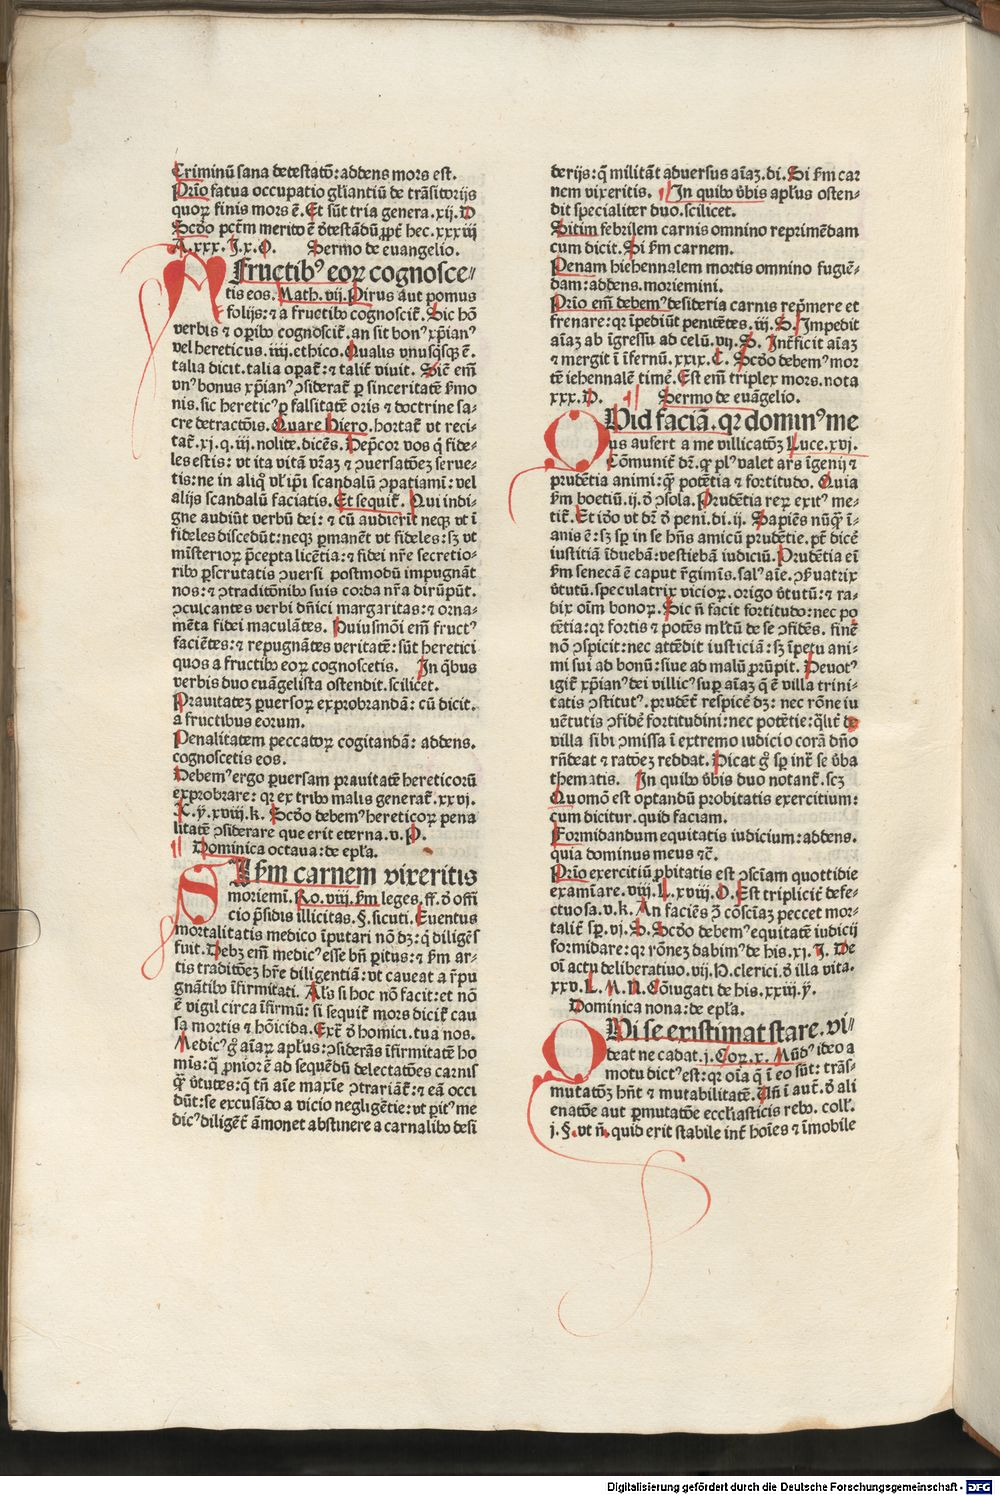 Criminū sana detestatō: addens mors est.
Prīo fatua occupatio gl̄iantiū de trāsitorijs
quoꝝ finis mors ē. Et sūt tria genera. xij. D
Scd̄o pctm̄ merito ē d̄testādū ꝓpt̄ hec. xxxiij
A. xxx. J. x. O. Sermo de euangelio.
A fructibꝰ eoꝝ cognosce-
tis eos. Math. vij. Pirus aut pomus
folijs: ⁊ a fructibꝰ cognoscit̄. Sic hō
verbis ⁊ oꝑibꝰ cognoscit̄. an sit bonꝰ xp̄ianꝰ
vel hereticus. iiij. ethico. Qualis vnusq̄sqꝫ ē.
talia dicit. talia oꝑat̄: ⁊ talit̄ viuit. Sic̄ em̄
vnꝰ bonus xp̄ianꝰ ꝯsiderat̄ ꝑ sinceritatē ẜmo
nis. sic hereticꝰ ꝑ falsitatē oris ⁊ doctrine sa-
cre detractōis. Quare Hiero. hortat̄ vt reci-
tat̄. xj. q. iij. nolite. dicēs. Dep̄cor vos q̄ fide-
les estis: vt ita vitā vr̄aꝫ ⁊ ꝯuersatōeꝫ serue-
tis: ne in aliqͦ vl̓ ip̄i scandalū ꝯpatiami: vel
alijs scandalū faciatis. Et sequit̄. Qui indi-
gne audiūt verbū dei: ⁊ cū audierīt neqꝫ vt ī
fideles discedūt: neqꝫ ꝑmanēt vt fideles: sꝫ vt
misterioꝝ p̄cepta licētia: ⁊ fidei nr̄e secretio-
ribꝰ ꝑscrutatis ꝯuersi postmodū impugnāt
nos: ⁊ ꝯtraditōnibꝰ suis corda nr̄a dirūpūt.
ꝯculcantes verbi dn̄ici margaritas: ⁊ orna-
mēta fidei maculātes. Huiusmōi em̄ fructꝰ
faciētes: ⁊ repugnātes veritatē: sūt heretici
quos a fructibꝰ eoꝝ cognoscetis. In q̄bus
verbis duo euāgelista ostendit. scilicet.
Prauitateꝫ ꝑuersoꝝ exprobrandā: cū dicit.
a fructibus eorum.
Penalitatem peccatoꝝ cogitandā: addens.
cognoscetis eos.
Debemꝰ ergo ꝑuersam prauitatē hereticorū
exprobrare: qꝛ ex tribꝰ malis generat̄. xxvj.
C. ⁊. xviij. k. Scd̄o debemꝰ hereticoꝝ pena
litatē ꝯsiderare que erit eterna. v. P.
Dominica octaua: de ep̄la.
SI ẜm carnem vixeritis
moriemi. Ro. viij. ẜm leges. ff. d̄ offi
cio p̄sidis illicitas. §. sicuti. Euentus
mortalitatis medico īputari nō dꝫ: q̄ diligēs
fuit. Debꝫ em̄ medicꝰ esse bn̄ ꝑitus: ⁊ ẜm ar-
tis traditōeꝫ hr̄e diligentiā: vt caueat a r̄pu
gnātibꝰ īfirmitati. Al̓s si hoc nō facit: et nō
ē vigil circa īfirmū: si sequit̄ mors dicit̄ cau
sa mortis ⁊ hōicida. Ext̄ d̄ homici. tua nos.
Medicꝰ gͦ aīaꝝ apl̄us: ꝯsiderās īfirmitatē ho
mīs: q̄ ꝓnior ē ad sequēdū delectatōes carnis
qͣꝫ v̓tutes: q̄ tn̄ aīe maxīe ꝯtrariāt̄: ⁊ eā occi
dūt: se excusādo a vicio negligētie: vt ꝑitꝰ me
dicꝰ diligēt̄ āmonet abstinere a carnalibꝰ desi
derijs: q̄ militāt aduersus aīaꝫ. di. Si ẜm car
nem vixeritis. In quibꝰ v̓bis apl̄us osten-
dit specialiter duo. scilicet.
Sitim febrilem carnis omnino reprimēdam
cum dicit. Si ẜm carnem.
Penam hiehennalem mortis omnino fugiē-
dam: addens. moriemini.
Prīo em̄ debemꝰ desideria carnis rep̄mere et
frenare: qꝛ īpediūt penitētes. iij. S. Impedit
aīaꝫ ab īgressu ad celū. vij. S. Int̄ficit aīaꝫ
⁊ mergit ī īfernū. xxix. C. Scd̄o debemꝰ mor
tē iehennalē timē. Est em̄ triplex mors. nota
xxx. D. Sermo de euāgelio.
QVid faciā. qꝛ dominꝰ me
us aufert a me villicatōꝫ Luce. xvj.
Cōmunit̄ dr̄. qͣ plꝰ valet ars īgenij ⁊
prudētia animi: qͣꝫ potētia ⁊ fortitudo. Quia
ẜm boetiū. ij. d̄ ꝯsola. Prudētia reꝝ exitꝰ me-
tit̄. Et iō vt dr̄ d̄ peni. di. ij. Sapiēs nūqͣꝫ ī-
anis ē: sꝫ sꝑ in se hn̄s amicū prudētie. pt̄ dicē
iustitiā īduebā: vestiebā iudiciū. Prudētia ei̅
ẜm senecā ē caput r̄gimīs. salꝰ aīe. ꝯẜuatrix
v̓tutū. speculatrix vicioꝝ. origo v̓tutū: ⁊ ra-
dix oīm bonoꝝ. Sic n̄ facit fortitudo: nec po
tētia: qꝛ fortis ⁊ potēs ml̓tū de se ꝯfidēs. finē
nō ꝯspicit: nec attēdit iusticiā: sꝫ īpetu ani-
mi sui ad bonū: siue ad malū ꝓrūpit. Deuotꝰ
igit̄ xp̄ianꝰ dei villicꝰ suꝑ aīaꝫ q̄ ē villa trini-
tatis ꝯstitutꝰ. prudēt̄ respicē dꝫ: nec rōne iu
uētutis ꝯfidē fortitudini: nec potētie: q̄lit̄ de
villa sibi ꝯmissa ī extremo iudicio corā dn̄o
rn̄deat ⁊ ratōeꝫ reddat. Dicat gͦ sꝑ int̄ se v̓ba
thematis. In quibꝰ v̓bis duo notant̄. scꝫ
Quomō est optandū probitatis exercitium:
cum dicitur. quid faciam.
Formidandum equitatis iudicium: addens.
quia dominus meus ⁊c̄.
Prīo exercitiū ꝓbitatis est ꝯsciam quottidie
examiare. viij. L. xviij. O. Est triplicit̄ defe-
ctuosa. v. k. An faciēs ꝯ̄ cōsciāꝫ peccet mor-
talit̄ sꝑ. vj. S. Scd̄o debemꝰ equitatē iudicij
formidare: qꝛ rōneꝫ dabimꝰ de his. xj. J. De
oī actu deliberatiuo. vij. H. clerici. d̄ illa vita.
xxv. L. M. N. Cōiugati de his. xxiij. ⁊.
Dominica nona: de ep̄la.
QVi se existimat stare. vi-
deat ne cadat. j. Coꝝ. x. Mūdꝰ ideo a
motu dictꝰ est: qꝛ oīa q̄ ī eo sūt: trās-
mutatōꝫ hn̄t ⁊ mutabilitatē. Vn̄ ī aut̄. d̄ ali
enatōe aut ꝑmutatōe eccl̄iasticis rebꝰ. coll̓.
j. §. vt n̄. quid erit stabile int̄ hoīes ⁊ īmobile
Digitalisierung gefördert durch die Deutsche Forschungsgemeinschaft - DFG